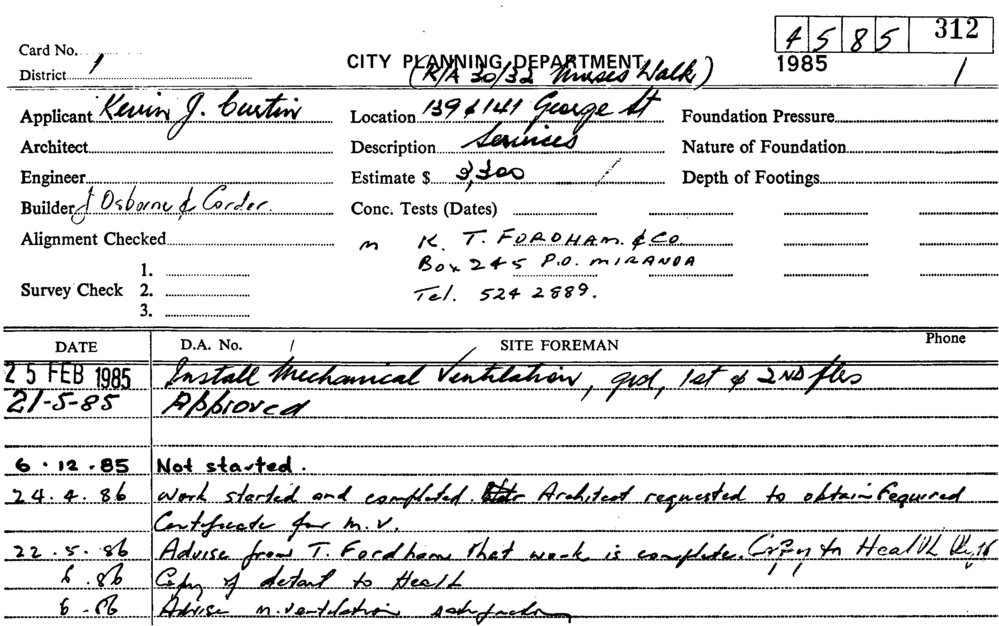 4585 312
Card No.
CITY PLANNING DEPARTMENT
1985
District 1
(R/A 30/32 Nurses Walk)
1
Applicant Kevin J. Curtin
Location 139 & 141 George St
Foundation Pressure
Architect
Description Services
Nature of Foundation
Engineer
Estimate $ 3,300
Depth of Footings
Builder J Osborne & Corder.
Conc. Tests (Dates)
Alignment Checked
m K. T. FORDHAM. & CO
BOX 245 P.O. MIRANDA
Survey Check 1. 2. 3.
Tel. 524 2889.
DATE D.A. No. SITE FOREMAN Phone
25 FEB 1985 Install Mechanical Ventilation, grd, 1st & 2ND flrs
21-5-85 Approved
6.12.85 Not started.
24.4.86 Work started and completed. Architect requested to obtain required
Certificate for M.V.
22.5.86 Advise from T. Fordham that work is complete. Copy to Health
6.86 Copy of to Health
6.86 Advise m. ventilation satisfactory